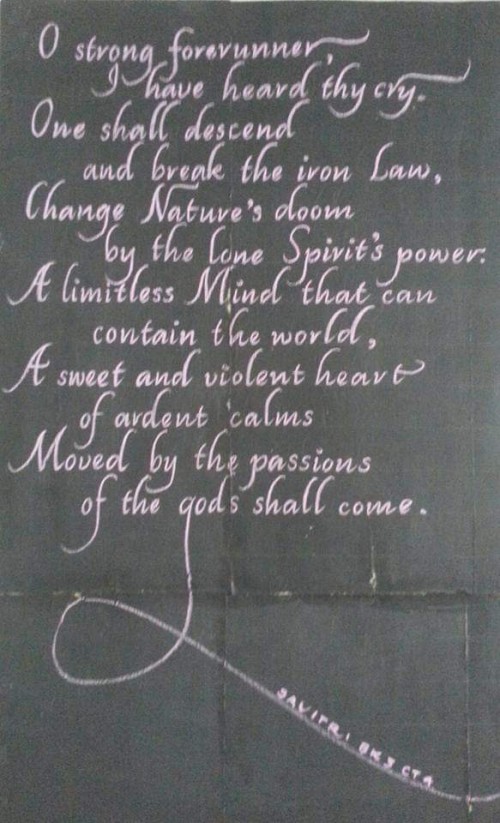 O strong forerunner,
I have heard thy cry.
One shall descend
and break the iron Law,
Change Nature's doom
by the lone Spirit's power.
A limitless Mind that can
contain the world,
A sweet and violent heart
of ardent calms
Moved by the passions
of the gods shall come.
SAVITRI, BK3 CT4